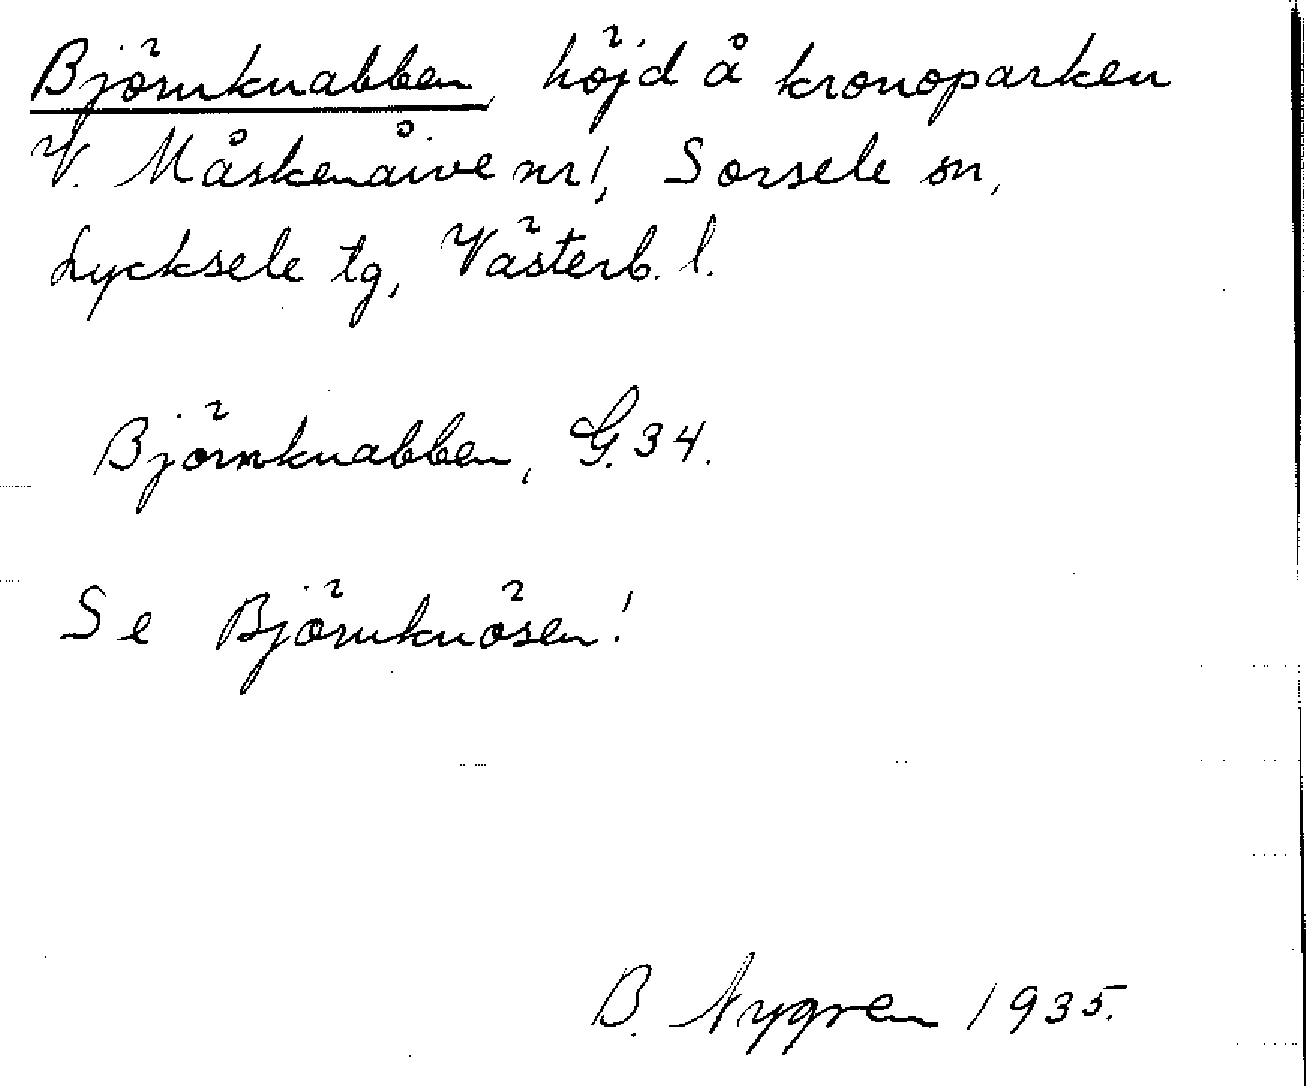 Björnknabben, höjd å kronoparken
V. Måskenåive nr 1, Sorsele sn,
Lycksele tg, Västerb. l.
Björnknabben, G. 34.
Se Björnknösen!
B. Nygren 1935.